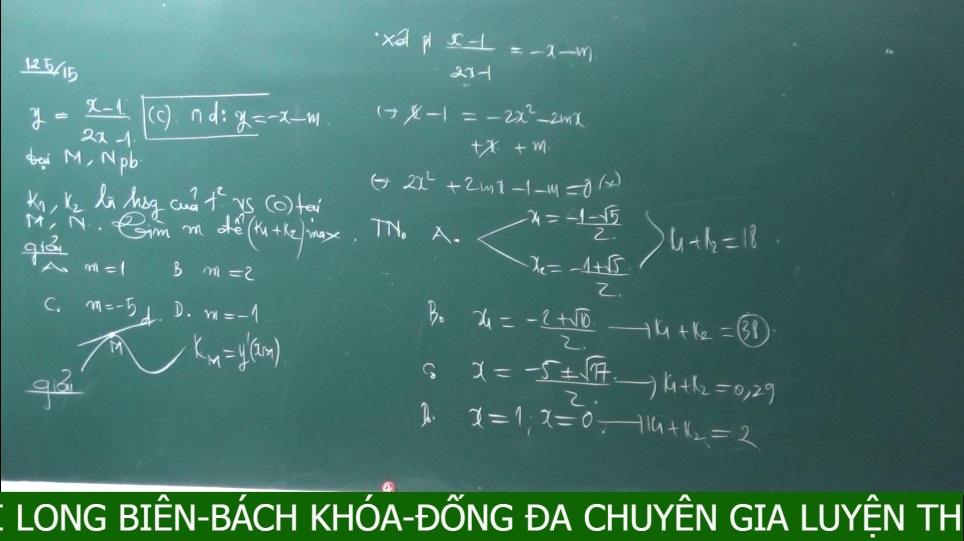 125/15
y = \frac{x-1}{2x-1} (C) ∩ d: y = -x-m
tại M, N pb.
K₁, K₂ là hsg của t² vs (C) tại
M, N. Tìm m để (K₁+K₂) max.
giải
A. m=1 B m=2
C. m=-5 D. m=-1
d
M
K_M = y'(x_M)
giải
· Xét pt \frac{x-1}{2x-1} = -x-m
(→ x-1 = -2x²-2mx
+x + m
(→ 2x² + 2mx -1-m = 0 (*)
TN. A. x₁ = \frac{-1-√5}{2}
x₂ = \frac{-1+√5}{2} K₁+K₂ = 18
B. x₁ = \frac{-2+√10}{2} → K₁+K₂ = 38
x = \frac{-5±√17}{2} → K₁+K₂ = 0,29
D. x=1; x=0 → K₁+K₂ = 2
LONG BIÊN-BÁCH KHÓA-ĐỐNG ĐA CHUYÊN GIA LUYỆN TH